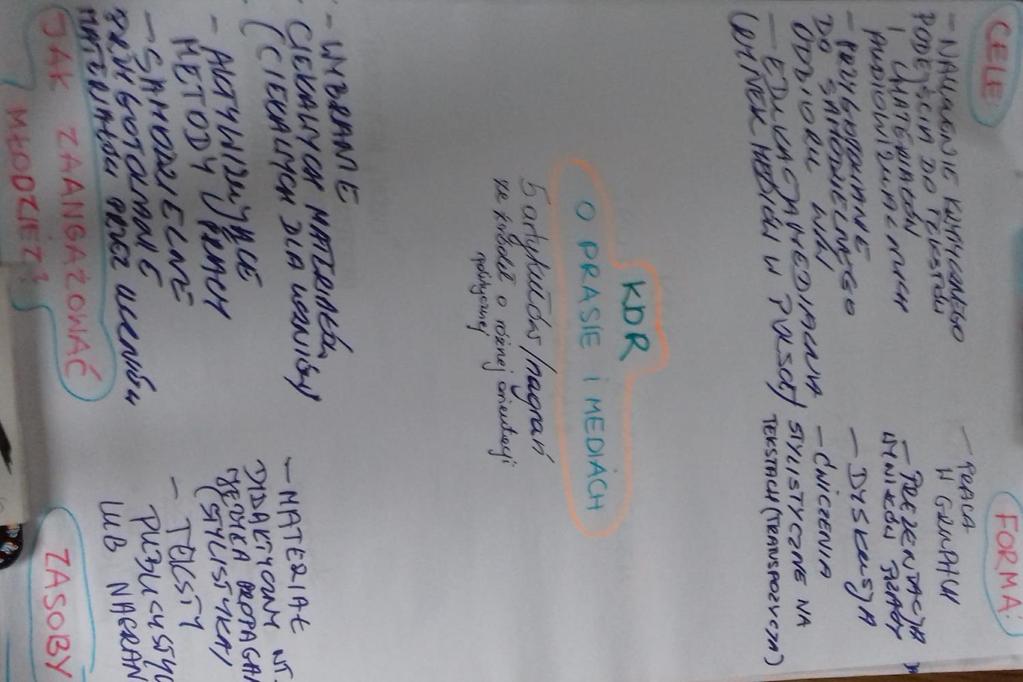 CELE:
- NAUCZENIE KRYTYCZNEGO
PODEJŚCIA DO TEKSTÓW
I MATERIAŁÓW
AUDIOWIZUALNYCH
- PRZYGOTOWANIE
DO SAMODZIELNEGO
ODBIORU
- EDUKACJA MEDIALNA
(RYNEK MEDIÓW W POLSCE)
FORMA:
- PRACA
W GRUPACH
- PREZENTACJA
WYNIKÓW PRACY
- DYSKUSJA
- ĆWICZENIA
STYLISTYCZNE NA
TEKSTACH (TRANSPOZYCJA)
KDR
O PRASIE I MEDIACH
5 artykułów/nagrań
ze źródeł o różnej orientacji
politycznej
- WYBRANIE
CIEKAWYCH MATERIAŁÓW
(CIEKAWYCH DLA uczniów)
- AKTYWIZUJĄCE
METODY PRACY
- SAMODZIELNE
PRZYGOTOWANIE
MATERIAŁÓW PRZEZ uczniów
JAK ZAANGAŻOWAĆ
MŁODZIEŻ?
- MATERIAŁ
DYDAKTYCZNY NT.
JĘZYKA PROPAGAN
(STYLISTYKA)
- TEKSTY
PUBLICYSTYC
LUB NAGRAN
ZASOBY